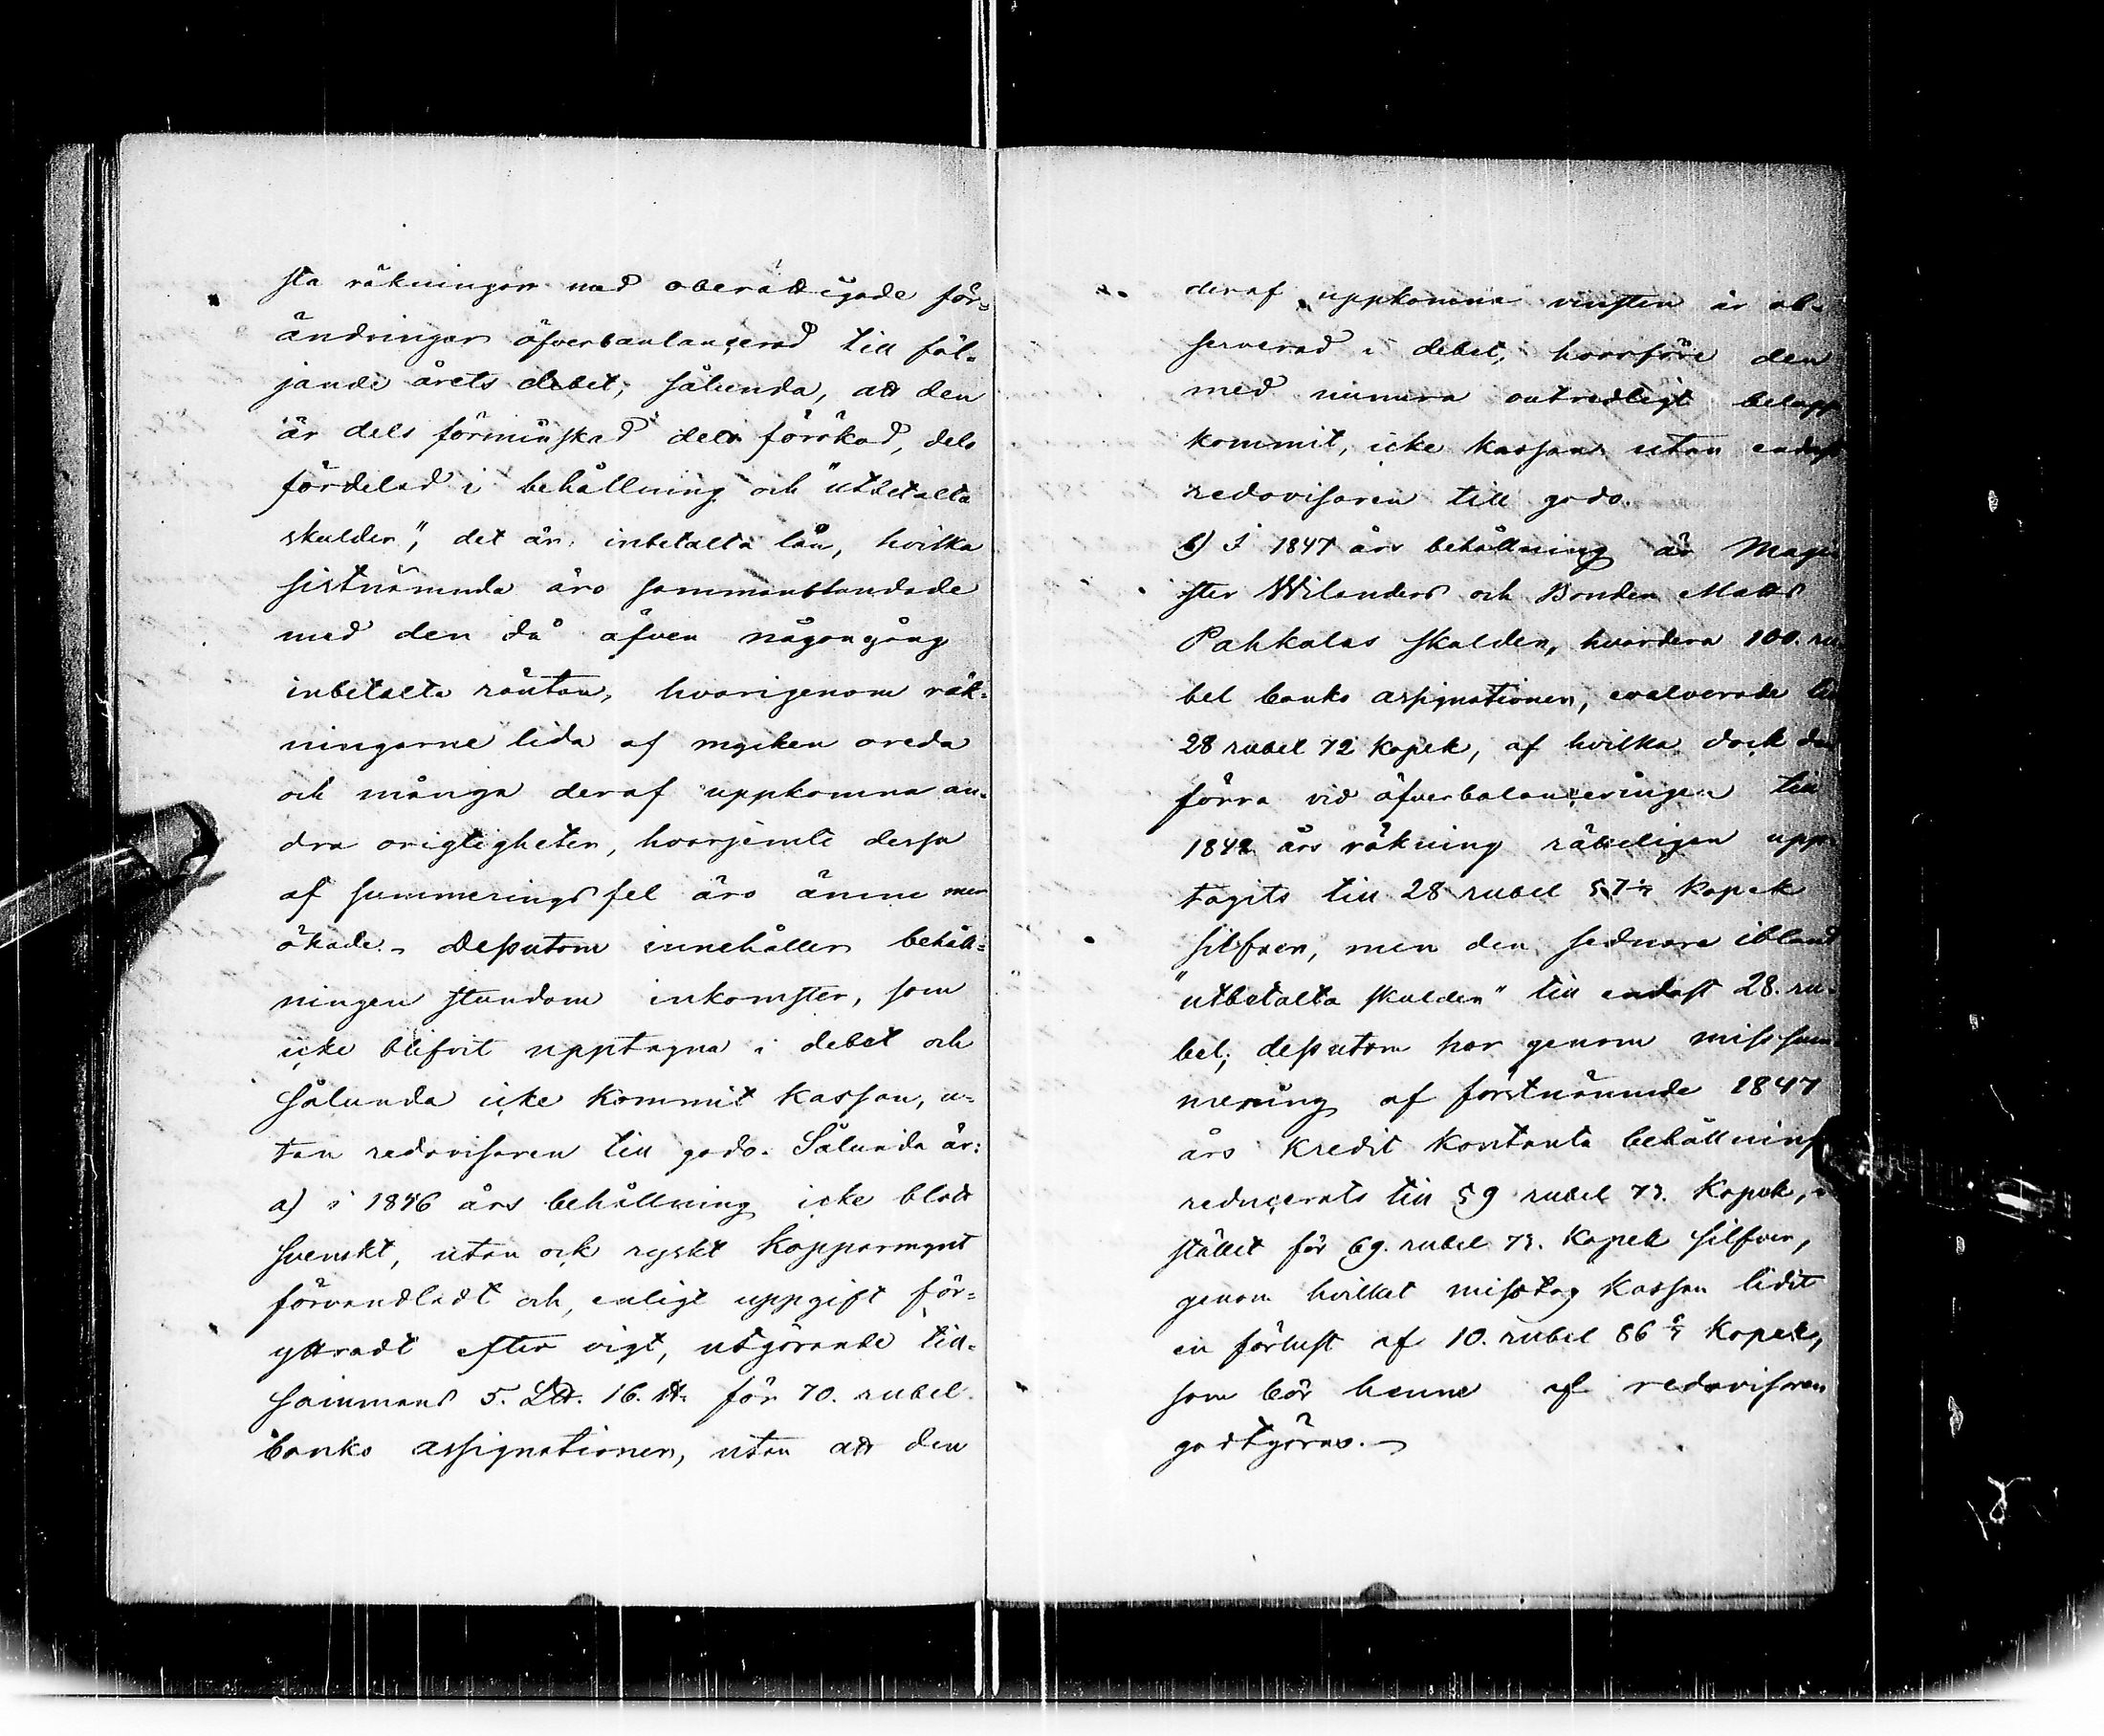 sta räkningar med oberättigade för=
ändringar öfverbanlancerad till föl-
jande årets debet; sålunda, att den
är dels förminskad dels förökad, dels
fördelad i behållning och "utbetalta
skulder", det är: inbetalta lån, hvilka
sistnämnda äro sammanblandade
med den då äfven någongång
inbetalta räntan, hvarigenom räk-
ningarne lida af mycken oreda
och många deraf uppkomna an-
dra origtigheter, hvarjemte dessa
af summerings fel äro ännu mer
ökade. Dessutom innehåller behåll=
ningen stundom inkomster, som
icke blifvit upptagna i debet och
sålunda icke kommit kassan, u-
tan redovisaren till godo. Sålunda är:
a) i 1846 års behållning icke blott
svenskt, utan ock ryskt kopparmynt
förvandladt och, enligt uppgift för=
yttradt efter vigt, utgörande till-
sammans 5. L℔. 16. ℔. för 70. rubel
banko assignationer, utan att den
deraf uppkomna vinsten är ob-
serverad i debet; hvarföre den
med numera outredligt belopp
kommit, icke kassan utan endast
redovisaren till godo.
b) I 1847 års behållning är Magi
ster Wilanders och Bonden Matts
Pahkalas skulder, hvardera 100. ru
bel banko assignationer, evalverade till
28 rubel 72 kopek, af hvilka dock den
förra vid öfverbalanceringen till
års räkning upp-
tagits till 28 rubel 57 1/7 kopek
silfver, men den sednare ibland
"utbetalta skulder" till endast 28. ru-
bel; dessutom har genom missum
mering af förstnämnde 1847
års Kredit kontanta behållning
reducerats till 59 rubel 73. kopek, i
stället för 69. rubel 73. kopek silfver,
genom hvilket misstag kassan lidit
en förlust af 10. rubel 86 kopek,
som bör henne af redovisaren
godtgöras.